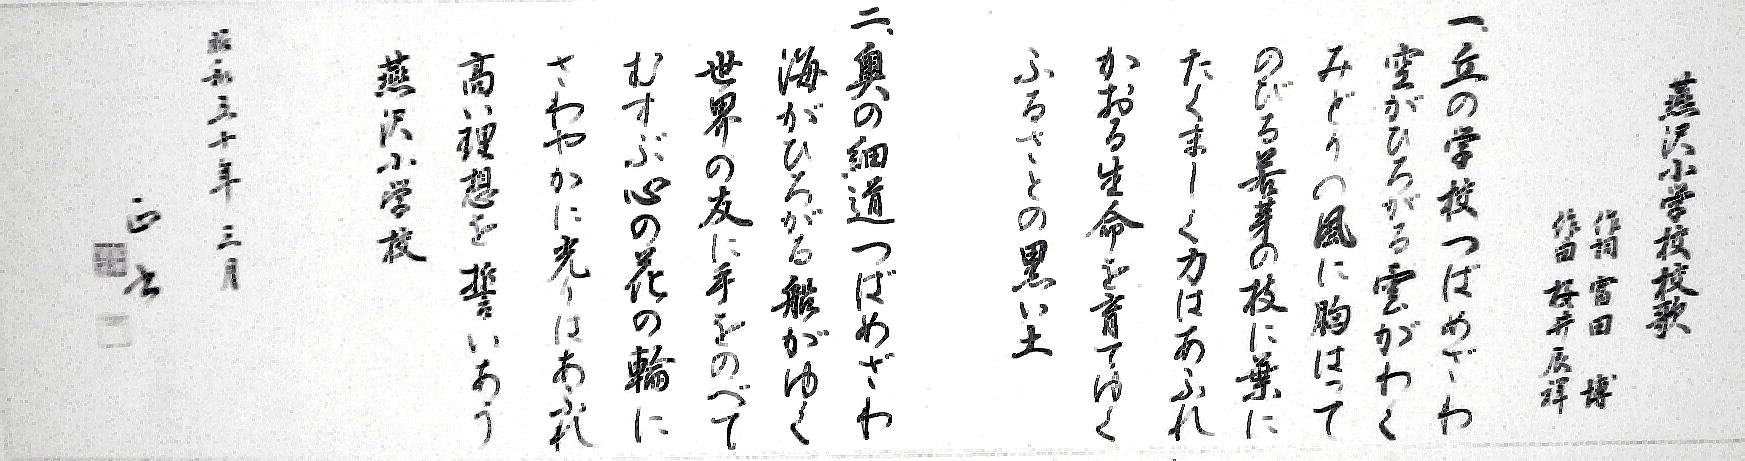 燕沢小学校校歌
作詞 富田 博
作曲 桜井辰祥
一、丘の学校つばめざわ
空がひろがる雲がわく
みどりの風に胸はって
のびる若芽の枝に葉に
たくましく力はあふれ
かおる生命を育てゆく
ふるさとの黒い土
二、奥の細道つばめざわ
海がひろがる船がゆく
世界の友に手をのべて
むすぶ心の花の輪に
さわやかに光りはあふれ
高い理想を誓いあう
燕沢小学校
昭和五十年 三月